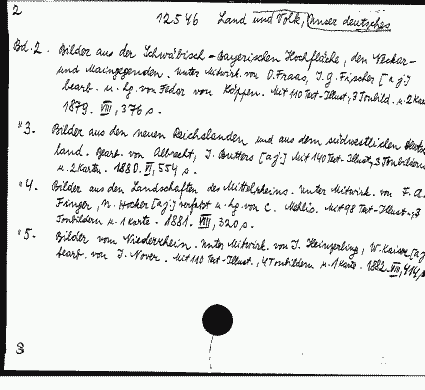 2
12546 Land und Volk, Unser deutsches
Bd. 2. Bilder aus der Schwäbisch-Bayerischen Hochfläche, den Neckar-
und Maingegenden. Unter Mitwirk. von O. Fraas, J. G. Fischer [u.a.]
bearb. u. hg. von Fedor von Köppen. Mit 110 Text-Illust., 3 Tonbild. u. 2 Kart
1879. VIII, 376 S.
" 3. Bilder aus den neuen Reichslanden und aus dem südwestlichen Deutsch
land. Bearb. von Albrecht, J. Butters [u.a.] Mit 140 Text-Illust., 3 Tonbildern
u. 2 Karten. 1880. VI, 554 S.
" 4. Bilder aus den Landschaften des Mittelrheins. Unter Mitwirk. von F. A.
Finger, N. Hocker [u.a.] verfasst u. hg. von C. Mehlis. Mit 98 Text-Illust., 3
Tonbildern u. 1 Karte. 1881. VIII, 320 S.
" 5. Bilder vom Niederrhein. Unter Mitwirk. von J. Heingerling, W. Kaiser [u.a.]
bearb. von J. Nover. Mit 110 Text-Illust., 4 Tonbildern u. 1 Karte. 1882. VIII, 414 S.
3